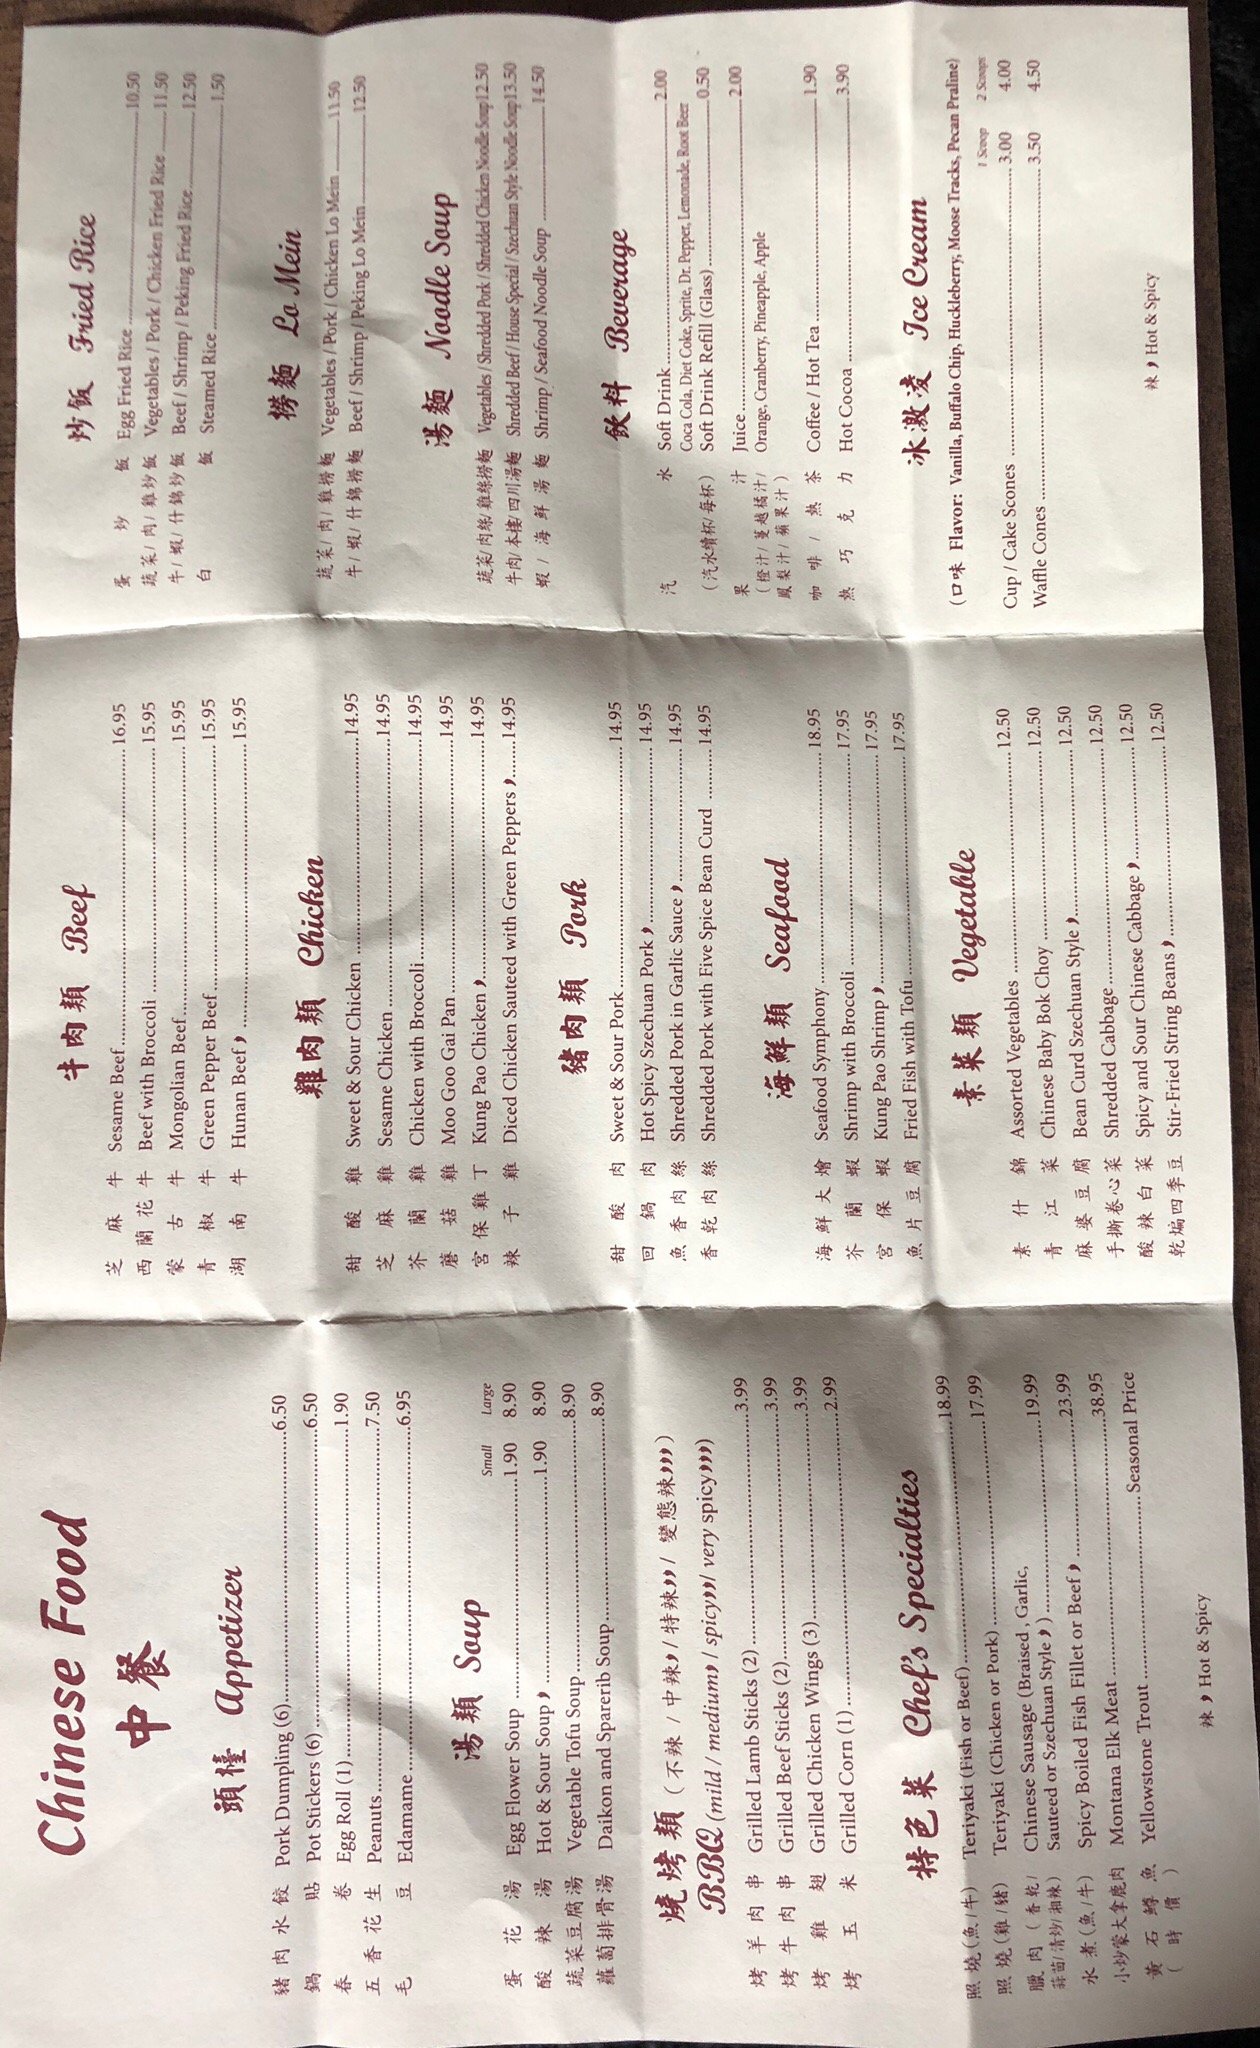 Chinese Food
中餐
頭檯 Appetizer
豬肉水餃 Pork Dumpling (6) 6.50
鍋貼 Pot Stickers (6) 6.50
春卷 Egg Roll (1) 1.90
五香花生 Peanuts 7.50
毛豆 Edamame 6.95
湯類 Soup
Small Large
蛋花湯 Egg Flower Soup 1.90 8.90
酸辣湯 Hot & Sour Soup 1.90 8.90
蔬菜豆腐湯 Vegetable Tofu Soup 8.90
蘿蔔排骨湯 Daikon and Sparerib Soup 8.90
燒烤類 (不辣 / 中辣 / 特辣 / 變態辣)
BBQ (mild / medium / spicy / very spicy)
烤羊肉串 Grilled Lamb Sticks (2) 3.99
烤牛肉串 Grilled Beef Sticks (2) 3.99
烤雞翅 Grilled Chicken Wings (3) 3.99
烤玉米 Grilled Corn (1) 2.99
特色菜 Chef's Specialties
照燒(魚/牛) Teriyaki (Fish or Beef) 18.99
照燒(雞/豬) Teriyaki (Chicken or Pork) 17.99
臘肉(香乾/ Chinese Sausage (Braised , Garlic,
蒜苗/清炒/湘辣) Sauteed or Szechuan Style ) 19.99
水煮(魚/牛) Spicy Boiled Fish Fillet or Beef 23.99
小炒蒙大拿鹿肉 Montana Elk Meat 38.95
黃石鱒魚 Yellowstone Trout Seasonal Price
(時價)
辣 Hot & Spicy
牛肉類 Beef
芝麻牛 Sesame Beef 16.95
西蘭花牛 Beef with Broccoli 15.95
蒙古牛 Mongolian Beef 15.95
青椒牛 Green Pepper Beef 15.95
湖南牛 Hunan Beef 15.95
雞肉類 Chicken
甜酸雞 Sweet & Sour Chicken 14.95
芝麻雞 Sesame Chicken 14.95
芥蘭雞 Chicken with Broccoli 14.95
蘑菇雞 Moo Goo Gai Pan 14.95
宮保雞丁 Kung Pao Chicken 14.95
辣子雞 Diced Chicken Sauteed with Green Peppers 14.95
豬肉類 Pork
甜酸肉 Sweet & Sour Pork 14.95
回鍋肉 Hot Spicy Szechuan Pork 14.95
魚香肉絲 Shredded Pork in Garlic Sauce 14.95
香乾肉絲 Shredded Pork with Five Spice Bean Curd 14.95
海鮮類 Seafood
海鮮大燴 Seafood Symphony 18.95
芥蘭蝦 Shrimp with Broccoli 17.95
宮保蝦 Kung Pao Shrimp 17.95
魚片豆腐 Fried Fish with Tofu 17.95
素菜類 Vegetable
素什錦 Assorted Vegetables 12.50
青江菜 Chinese Baby Bok Choy 12.50
麻婆豆腐 Bean Curd Szechuan Style 12.50
手撕卷心菜 Shredded Cabbage 12.50
酸辣白菜 Spicy and Sour Chinese Cabbage 12.50
乾煸四季豆 Stir-Fried String Beans 12.50
炒飯 Fried Rice
蛋炒飯 Egg Fried Rice 10.50
蔬菜/肉/雞炒飯 Vegetables / Pork / Chicken Fried Rice 11.50
牛/蝦/什錦炒飯 Beef / Shrimp / Peking Fried Rice 12.50
白飯 Steamed Rice 1.50
撈麵 Lo Mein
蔬菜/肉/雞撈麵 Vegetables / Pork / Chicken Lo Mein 11.50
牛/蝦/什錦撈麵 Beef / Shrimp / Peking Lo Mein 12.50
湯麵 Noodle Soup
蔬菜/肉絲/雞絲撈麵 Vegetables / Shredded Pork / Shredded Chicken Noodle Soup 12.50
牛肉/本樓/四川湯麵 Shredded Beef / House Special / Szechuan Style Noodle Soup 13.50
蝦/海鮮湯麵 Shrimp / Seafood Noodle Soup 14.50
飲料 Beverage
汽水 Soft Drink 2.00
Coca Cola, Diet Coke, Sprite, Dr. Pepper, Lemonade, Root Beer
(汽水續杯/每杯) Soft Drink Refill (Glass) 0.50
果汁 Juice 2.00
(橙汁/蔓越橘汁/ Orange, Cranberry, Pineapple, Apple
鳳梨汁/蘋果汁)
咖啡/熱茶 Coffee / Hot Tea 1.90
熱巧克力 Hot Cocoa 3.90
冰激凌 Ice Cream
(口味 Flavor: Vanilla, Buffalo Chip, Huckleberry, Moose Tracks, Pecan Praline)
1 Scoop 2 Scoops
Cup / Cake Scones 3.00 4.00
Waffle Cones 3.50 4.50
辣 Hot & Spicy